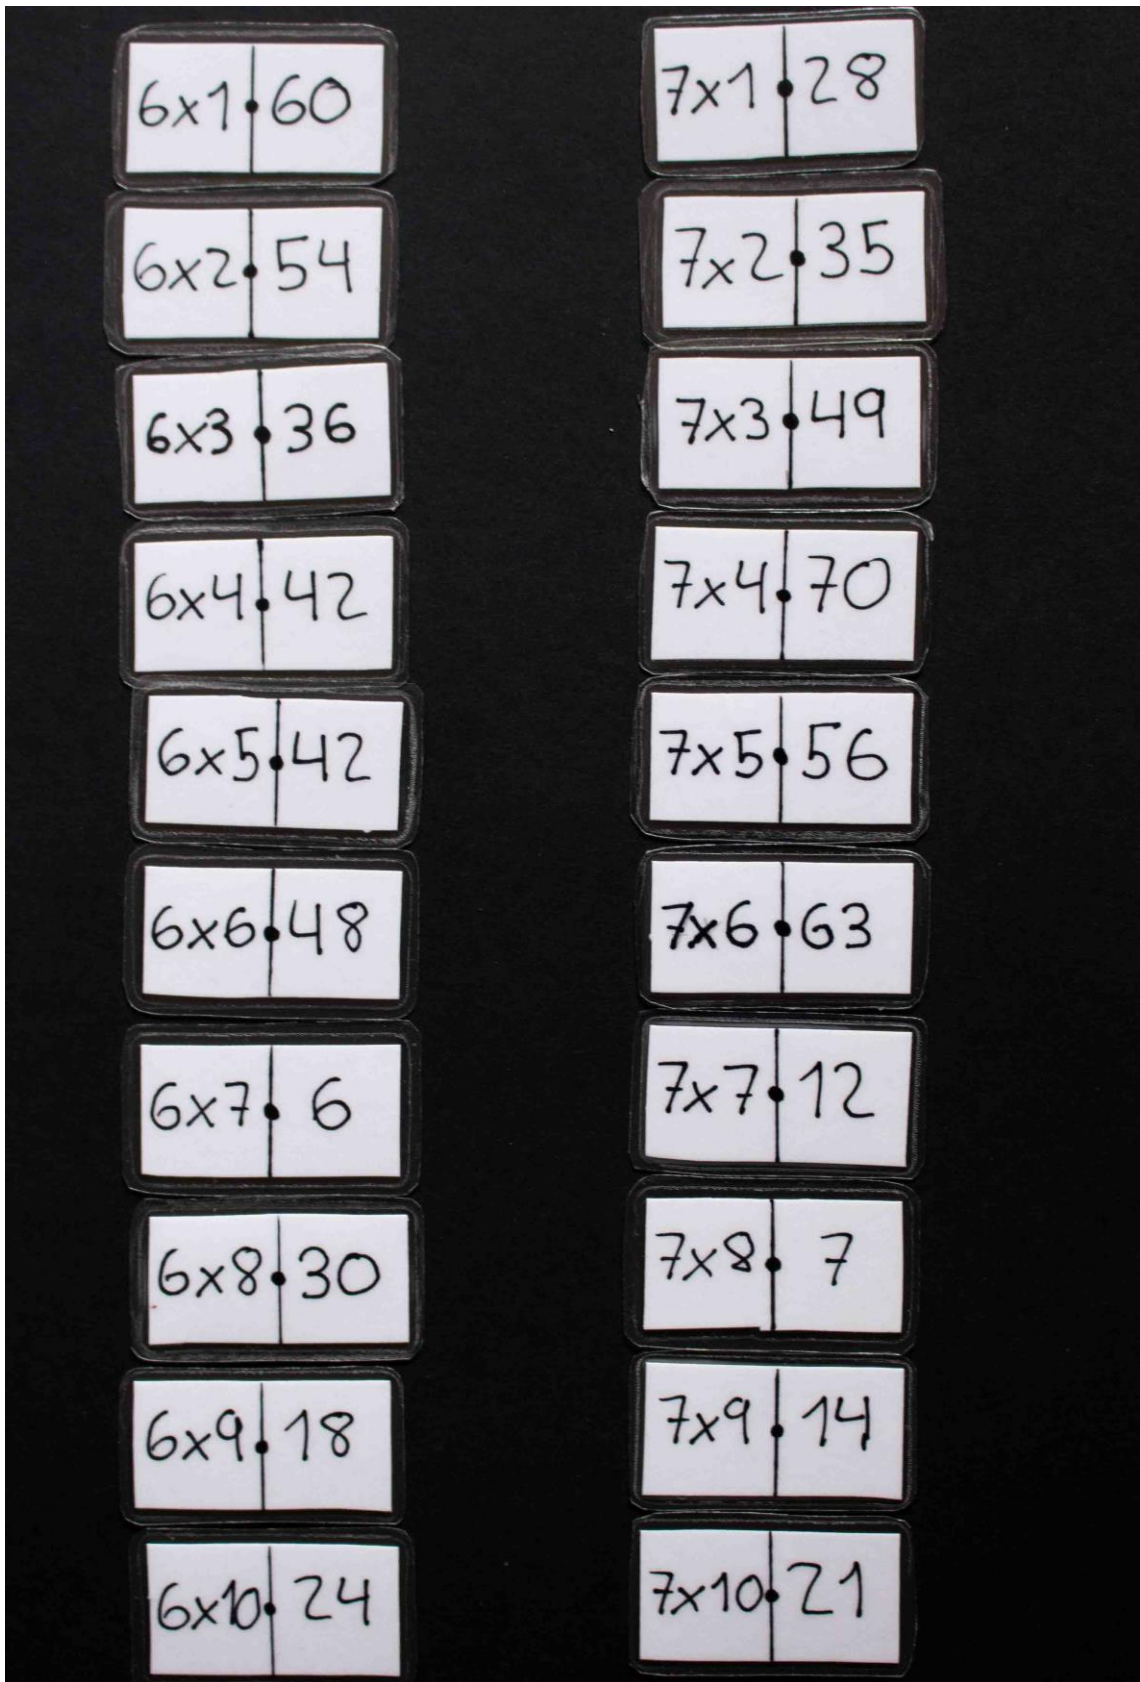 6x1 60
6x2 54
6x3 36
6x4 42
6x5 42
6x6 48
6x7 6
6x8 30
6x9 18
6x10 24
7x1 28
7x2 35
7x3 49
7x4 70
7x5 56
7x6 63
7x7 12
7x8 7
7x9 14
7x10 21